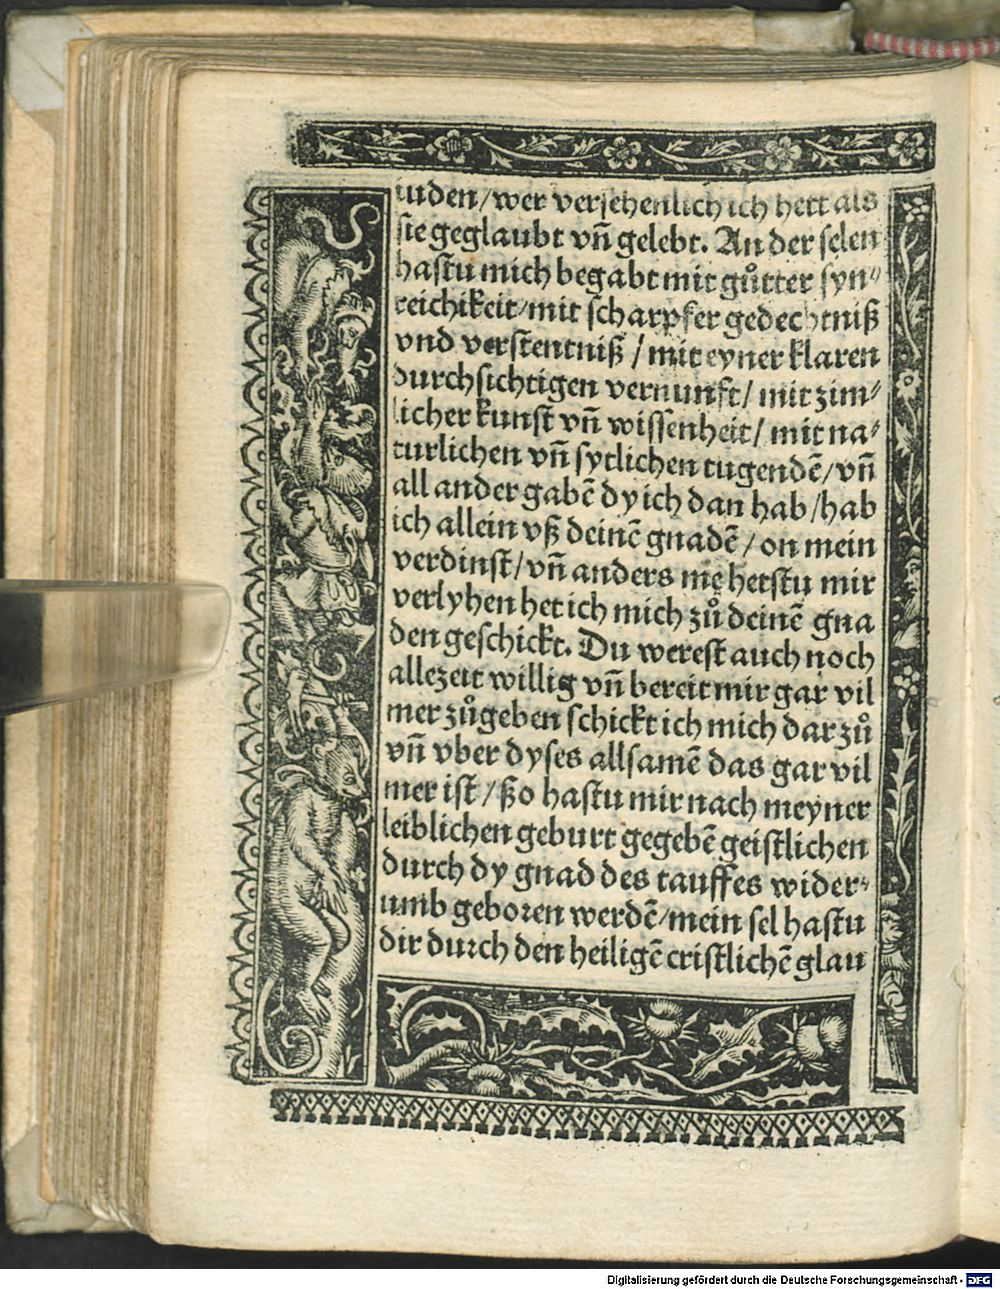 iuden/wer versehenlich ich hett als
sie geglaubt vn̄ gelebt. An der selen
hastu mich begabt mit gůtter syn⸗
reichikeit/mit scharpfer gedechtniß
vnd verstentniß / mit eyner klaren
durchsichtigen vernunft/ mit zim⸗
licher kunst vn̄ wissenheit/ mit na⸗
turlichen vn̄ sytlichen tugendē/vn̄
all ander gabē dy ich dan hab/hab
ich allein vß deinē gnadē/on mein
verdinst/vn̄ anders me hetstu mir
verlyhen het ich mich zů deinē gna
den geschickt. Du werest auch noch
allezeit willig vn̄ bereit mir gar vil
mer zůgeben schickt ich mich dar zů
vn̄ vber dyses allsamē das gar vil
mer ist/ßo hastu mir nach meyner
leiblichen geburt gegebē geistlichen
durch dy gnad des tauffes wider⸗
umb geboren werdē/mein sel hastu
dir durch den heiligē cristlichē glau
Digitalisierung gefördert durch die Deutsche Forschungsgemeinschaft - DFG